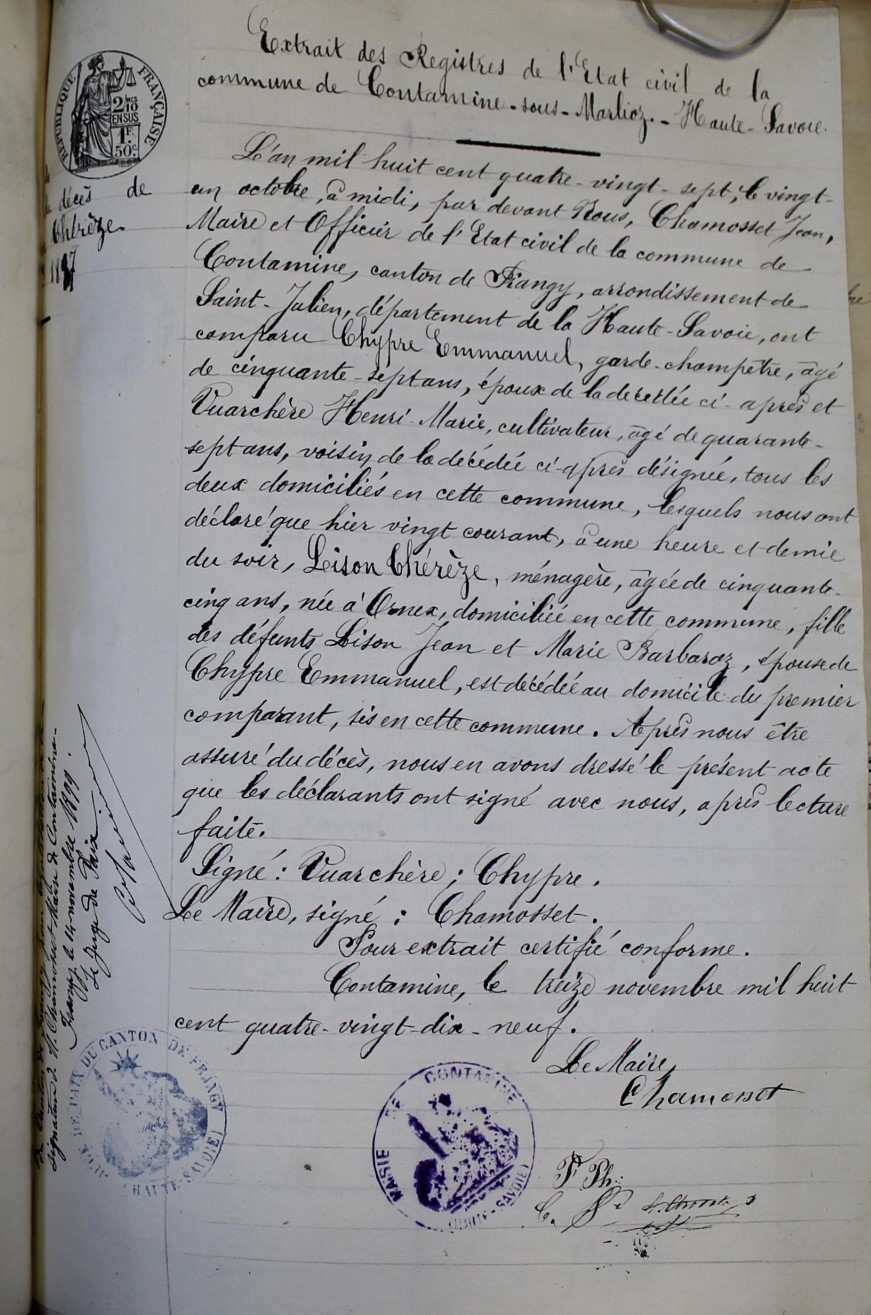 Extrait des Registres de l'Etat civil de la
commune de Contamine-sous-Marlioz.- Haute-Savoie.
RÉPUBLIQUE FRANÇAISE
2/10
EN SUS
1 F.
50 c.
décès de
Thérèze
1887
L'an mil huit cent quatre-vingt-sept, le vingt-
un octobre, à midi, par devant Nous, Chamosset Jean,
Maire et Officier de l'Etat civil de la commune de
Contamine, canton de Frangy, arrondissement de
Saint-Julien, département de la Haute-Savoie, ont
comparu Chypre Emmanuel, garde-champêtre, âgé
de cinquante-sept ans, époux de la decedée ci-après et
Vuarchère Henri-Marie, cultivateur, âgé de quarante-
sept ans, voisin de la décédée ci-après désignée, tous les
deux domiciliés en cette commune, lesquels nous ont
déclaré que hier vingt courant, à une heure et demie
du soir, Lison Thérèze, ménagère, âgée de cinquante-
cinq ans, née à Ornex, domiciliée en cette commune, fille
des défunts Lison Jean et Marie Barbaraz, épouse de
Chypre Emmanuel, est décédée au domicile du premier
comparant, sis en cette commune. Après nous être
assuré du décès, nous en avons dressé le présent acte
que les déclarants ont signé avec nous, après lecture
faite.
Signé: Vuarchère; Chypre.
Le Maire, signé: Chamosset.
Pour extrait certifié conforme.
Contamine, le treize novembre mil huit
cent quatre-vingt-dix-neuf.
Le Maire
Chamosset
signature de M. Chamosset Maire de Contamine.
Frangy, le 14 novembre 1899.
Le Juge de Paix
JUGE DE PAIX DU CANTON DE FRANGY
(HAUTE-SAVOIE)
MAIRIE DE CONTAMINE
(HAUTE-SAVOIE)